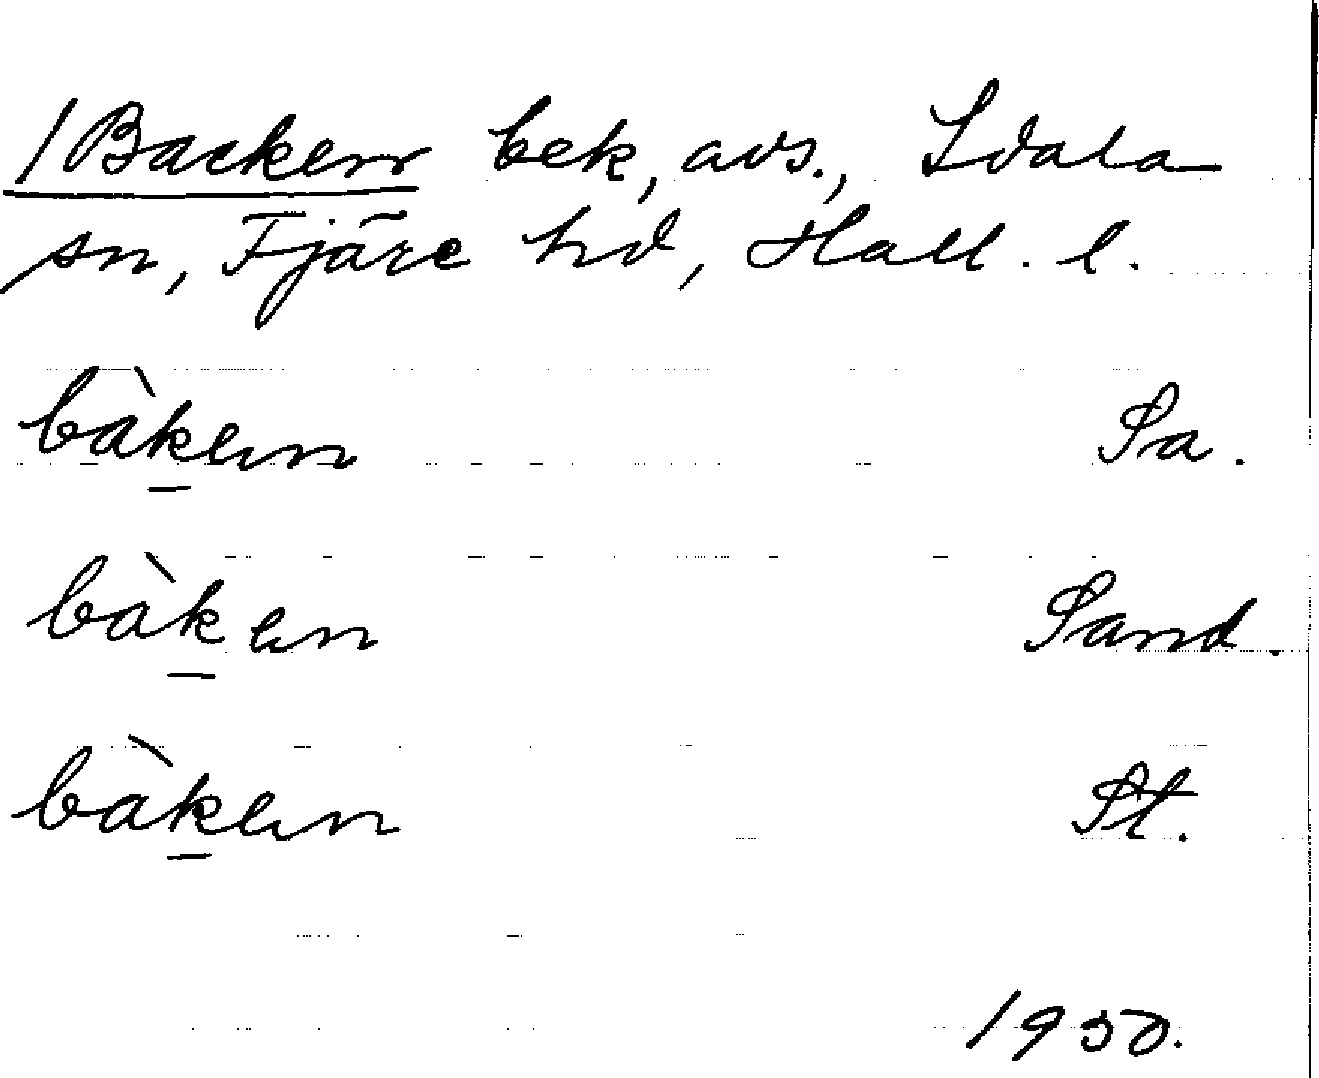 /Backen bek, avs., Idala
sn, Fjäre hd, Hall. l.
bàk̲en Sa.
bàk̲en Sand.
bàk̲en St.
1950.